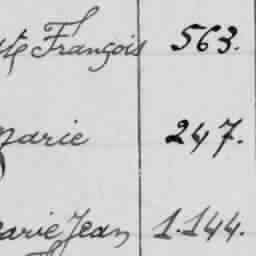 Ste François 563.
Marie 247.
Marie Jean 1.144.